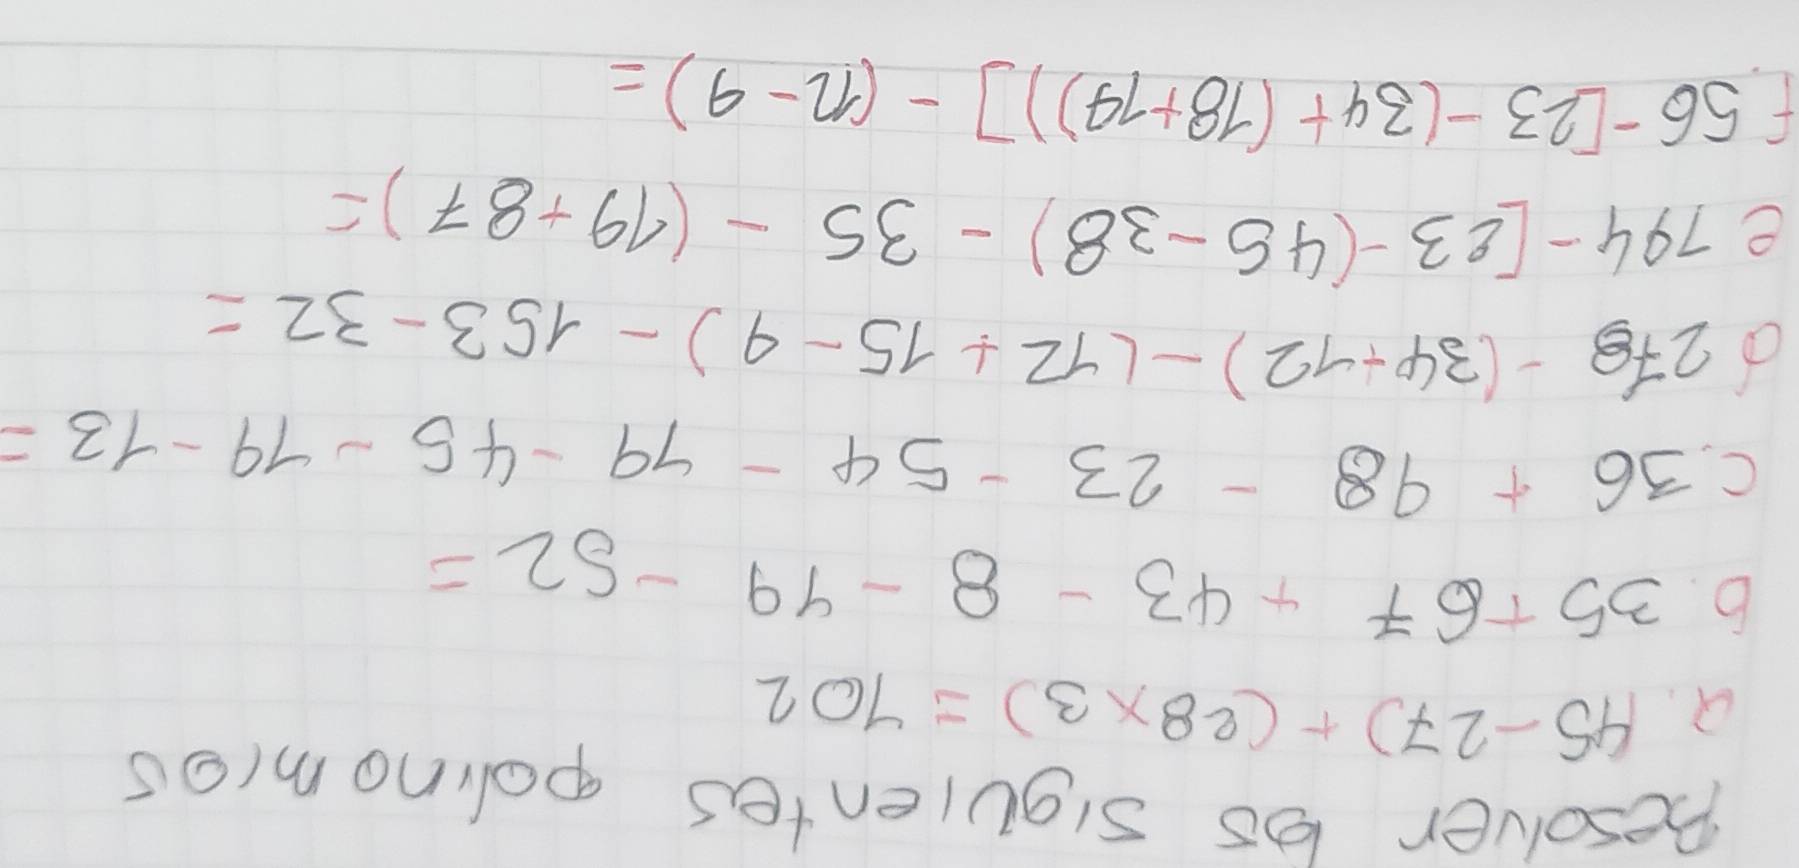 Resolver los siguientes polinomios
a. 45-27) + (28×3) = 102
b. 35+67 + 43 - 8 - 19 - 52 =
c. 36 + 98 - 23 - 54 - 19 - 45 - 19 - 13 =
d 278 - (34+12) - (12 + 15 - 9) - 153 - 32 =
e 194 - [23 - (45 - 38) - 35 - (19 + 87) =
f. 56 - [23 - (34 + (18+19))] - (12 - 9) =